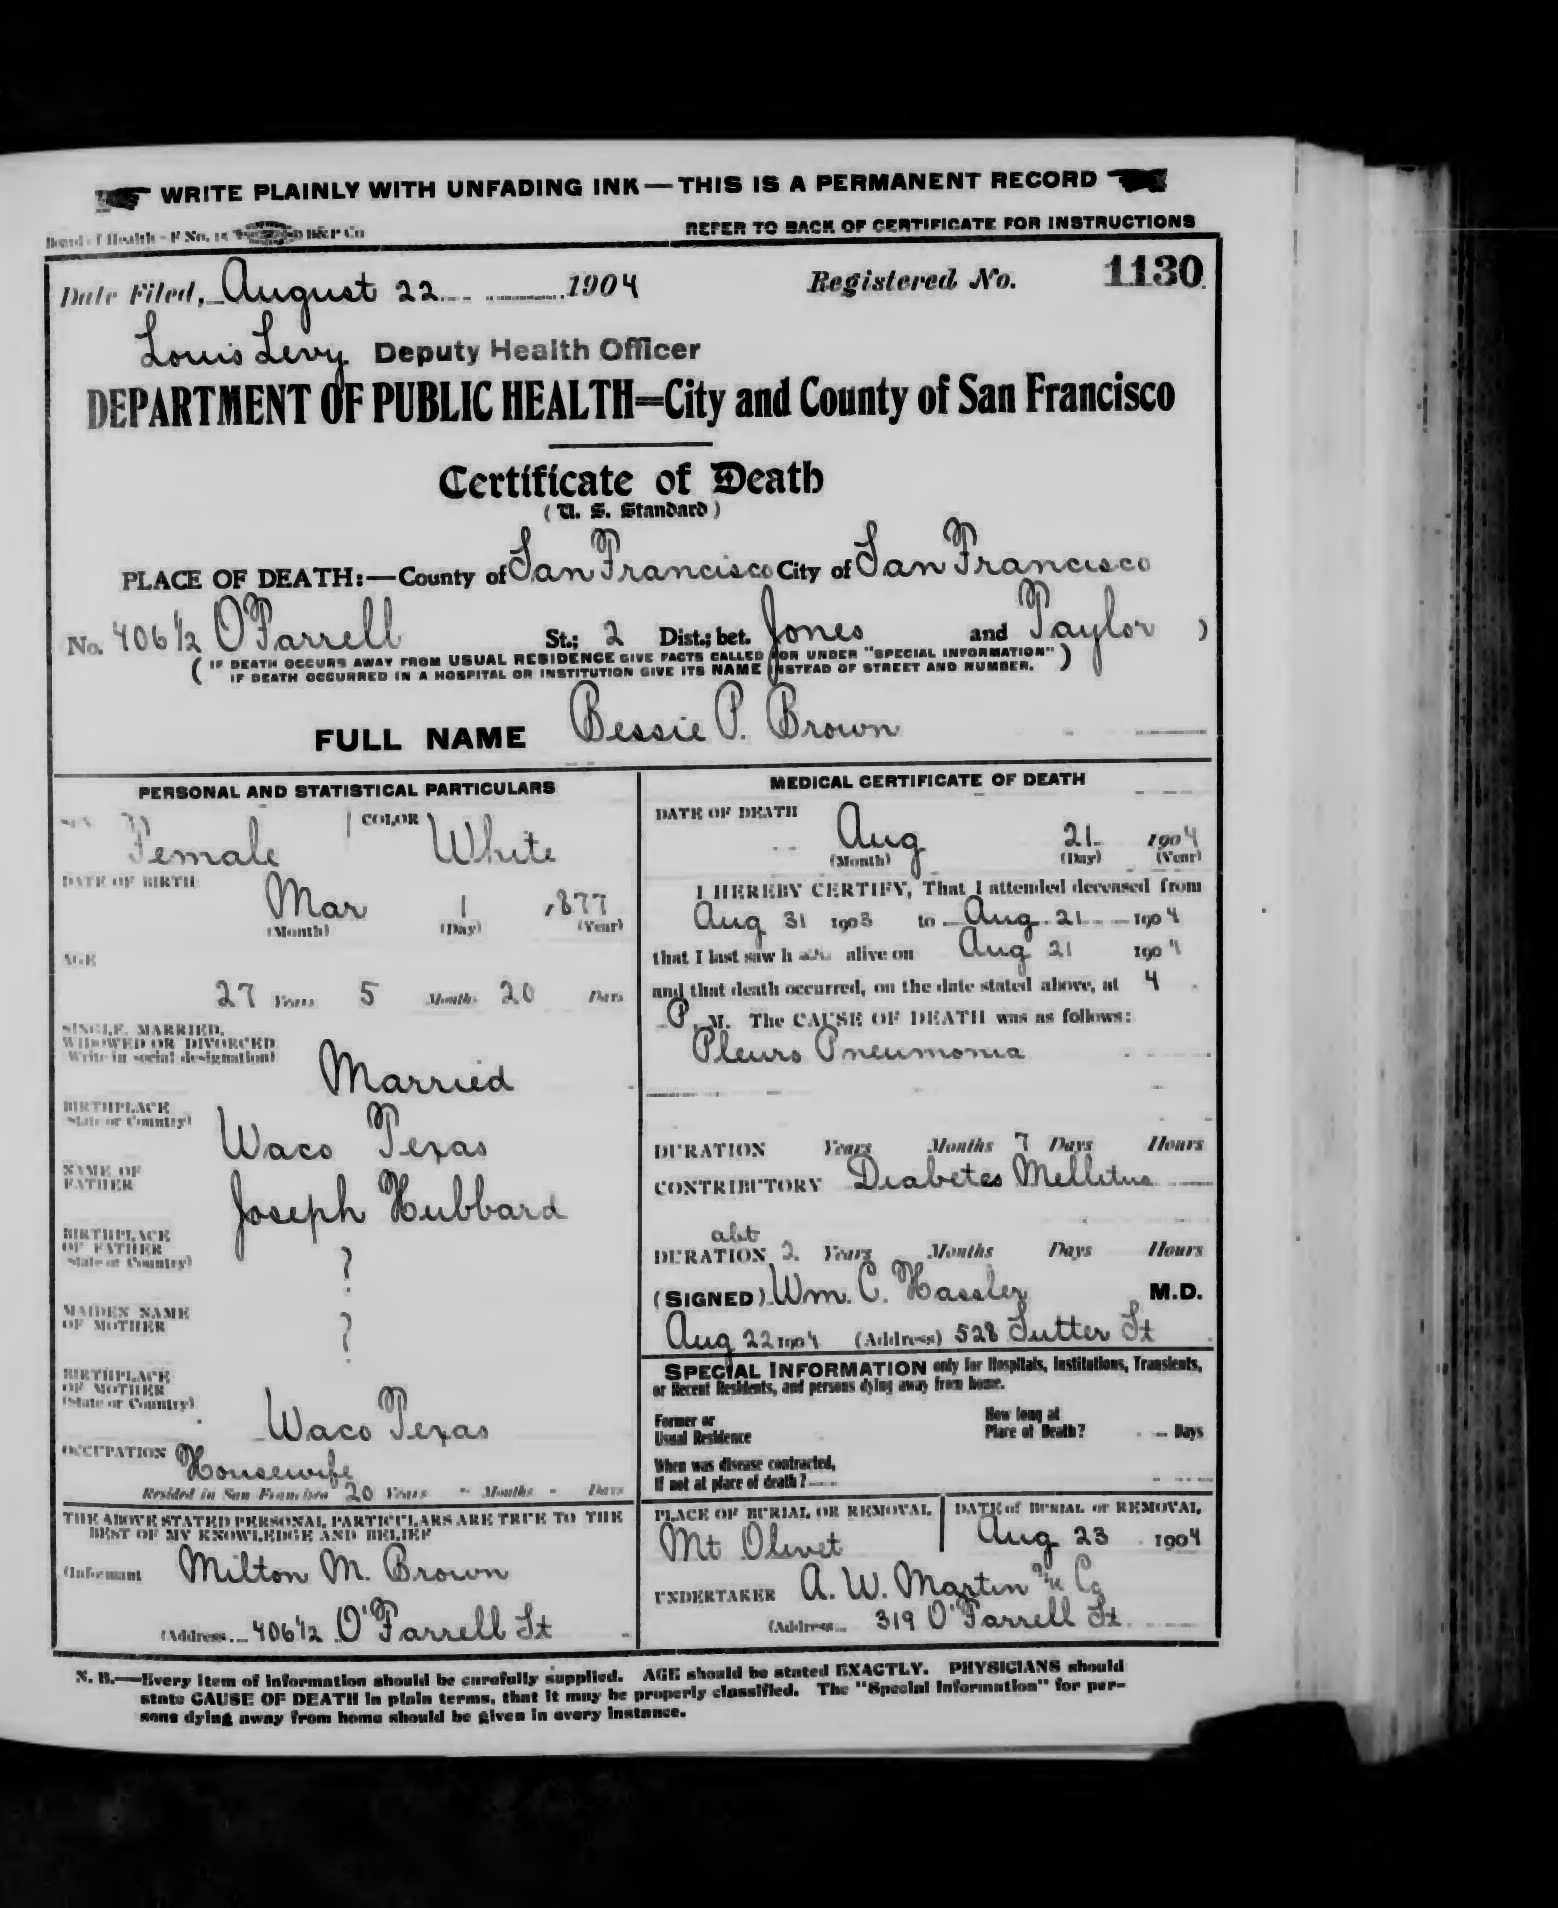 WRITE PLAINLY WITH UNFADING INK—THIS IS A PERMANENT RECORD
Board of Health—F No. 15 B&P Co
REFER TO BACK OF CERTIFICATE FOR INSTRUCTIONS
Date Filed, August 22 1904 Registered No. 1130
Louis Levy Deputy Health Officer
DEPARTMENT OF PUBLIC HEALTH=City and County of San Francisco
Certificate of Death
(U. S. Standard)
PLACE OF DEATH:—County of San Francisco City of San Francisco
No. 406 1/2 O'Farrell St.; 2 Dist.; bet. Jones and Taylor )
( IF DEATH OCCURS AWAY FROM USUAL RESIDENCE GIVE FACTS CALLED FOR UNDER "SPECIAL INFORMATION" )
IF DEATH OCCURRED IN A HOSPITAL OR INSTITUTION GIVE ITS NAME INSTEAD OF STREET AND NUMBER.
FULL NAME Bessie P. Brown
PERSONAL AND STATISTICAL PARTICULARS
SEX Female COLOR White
DATE OF BIRTH
Mar 1 1877
(Month) (Day) (Year)
AGE
27 Years 5 Months 20 Days
SINGLE, MARRIED,
WIDOWED OR DIVORCED
(Write in social designation)
Married
BIRTHPLACE
(State or Country)
Waco Texas
NAME OF
FATHER
Joseph Hubbard
BIRTHPLACE
OF FATHER
(State or Country)
?
MAIDEN NAME
OF MOTHER
?
BIRTHPLACE
OF MOTHER
(State or Country)
Waco Texas
OCCUPATION Housewife
Resided in San Francisco 20 Years - Months - Days
THE ABOVE STATED PERSONAL PARTICULARS ARE TRUE TO THE
BEST OF MY KNOWLEDGE AND BELIEF
(Informant Milton M. Brown
(Address 406 1/2 O'Farrell St
MEDICAL CERTIFICATE OF DEATH
DATE OF DEATH
Aug 21 1904
(Month) (Day) (Year)
I HEREBY CERTIFY, That I attended deceased from
Aug 31 1903 to Aug 21 1904
that I last saw h alive on Aug 21 1904
and that death occurred, on the date stated above, at 4
P. M. The CAUSE OF DEATH was as follows:
Pleuro Pneumonia
DURATION Years Months 7 Days Hours
CONTRIBUTORY Diabetes Mellitus
abt
DURATION 2 Years Months Days Hours
(SIGNED) Wm. C. Hassler M.D.
Aug 22 1904 (Address) 528 Sutter St
SPECIAL INFORMATION only for Hospitals, Institutions, Transients,
or Recent Residents, and persons dying away from home.
Former or
Usual Residence
How long at
Place of Death? Days
When was disease contracted,
If not at place of death?
PLACE OF BURIAL OR REMOVAL
Mt Olivet
DATE of BURIAL or REMOVAL
Aug 23 1904
UNDERTAKER A. W. Martin & Co
(Address 319 O'Farrell St
N. B.—Every item of information should be carefully supplied. AGE should be stated EXACTLY. PHYSICIANS should
state CAUSE OF DEATH in plain terms, that it may be properly classified. The "Special Information" for per-
sons dying away from home should be given in every instance.